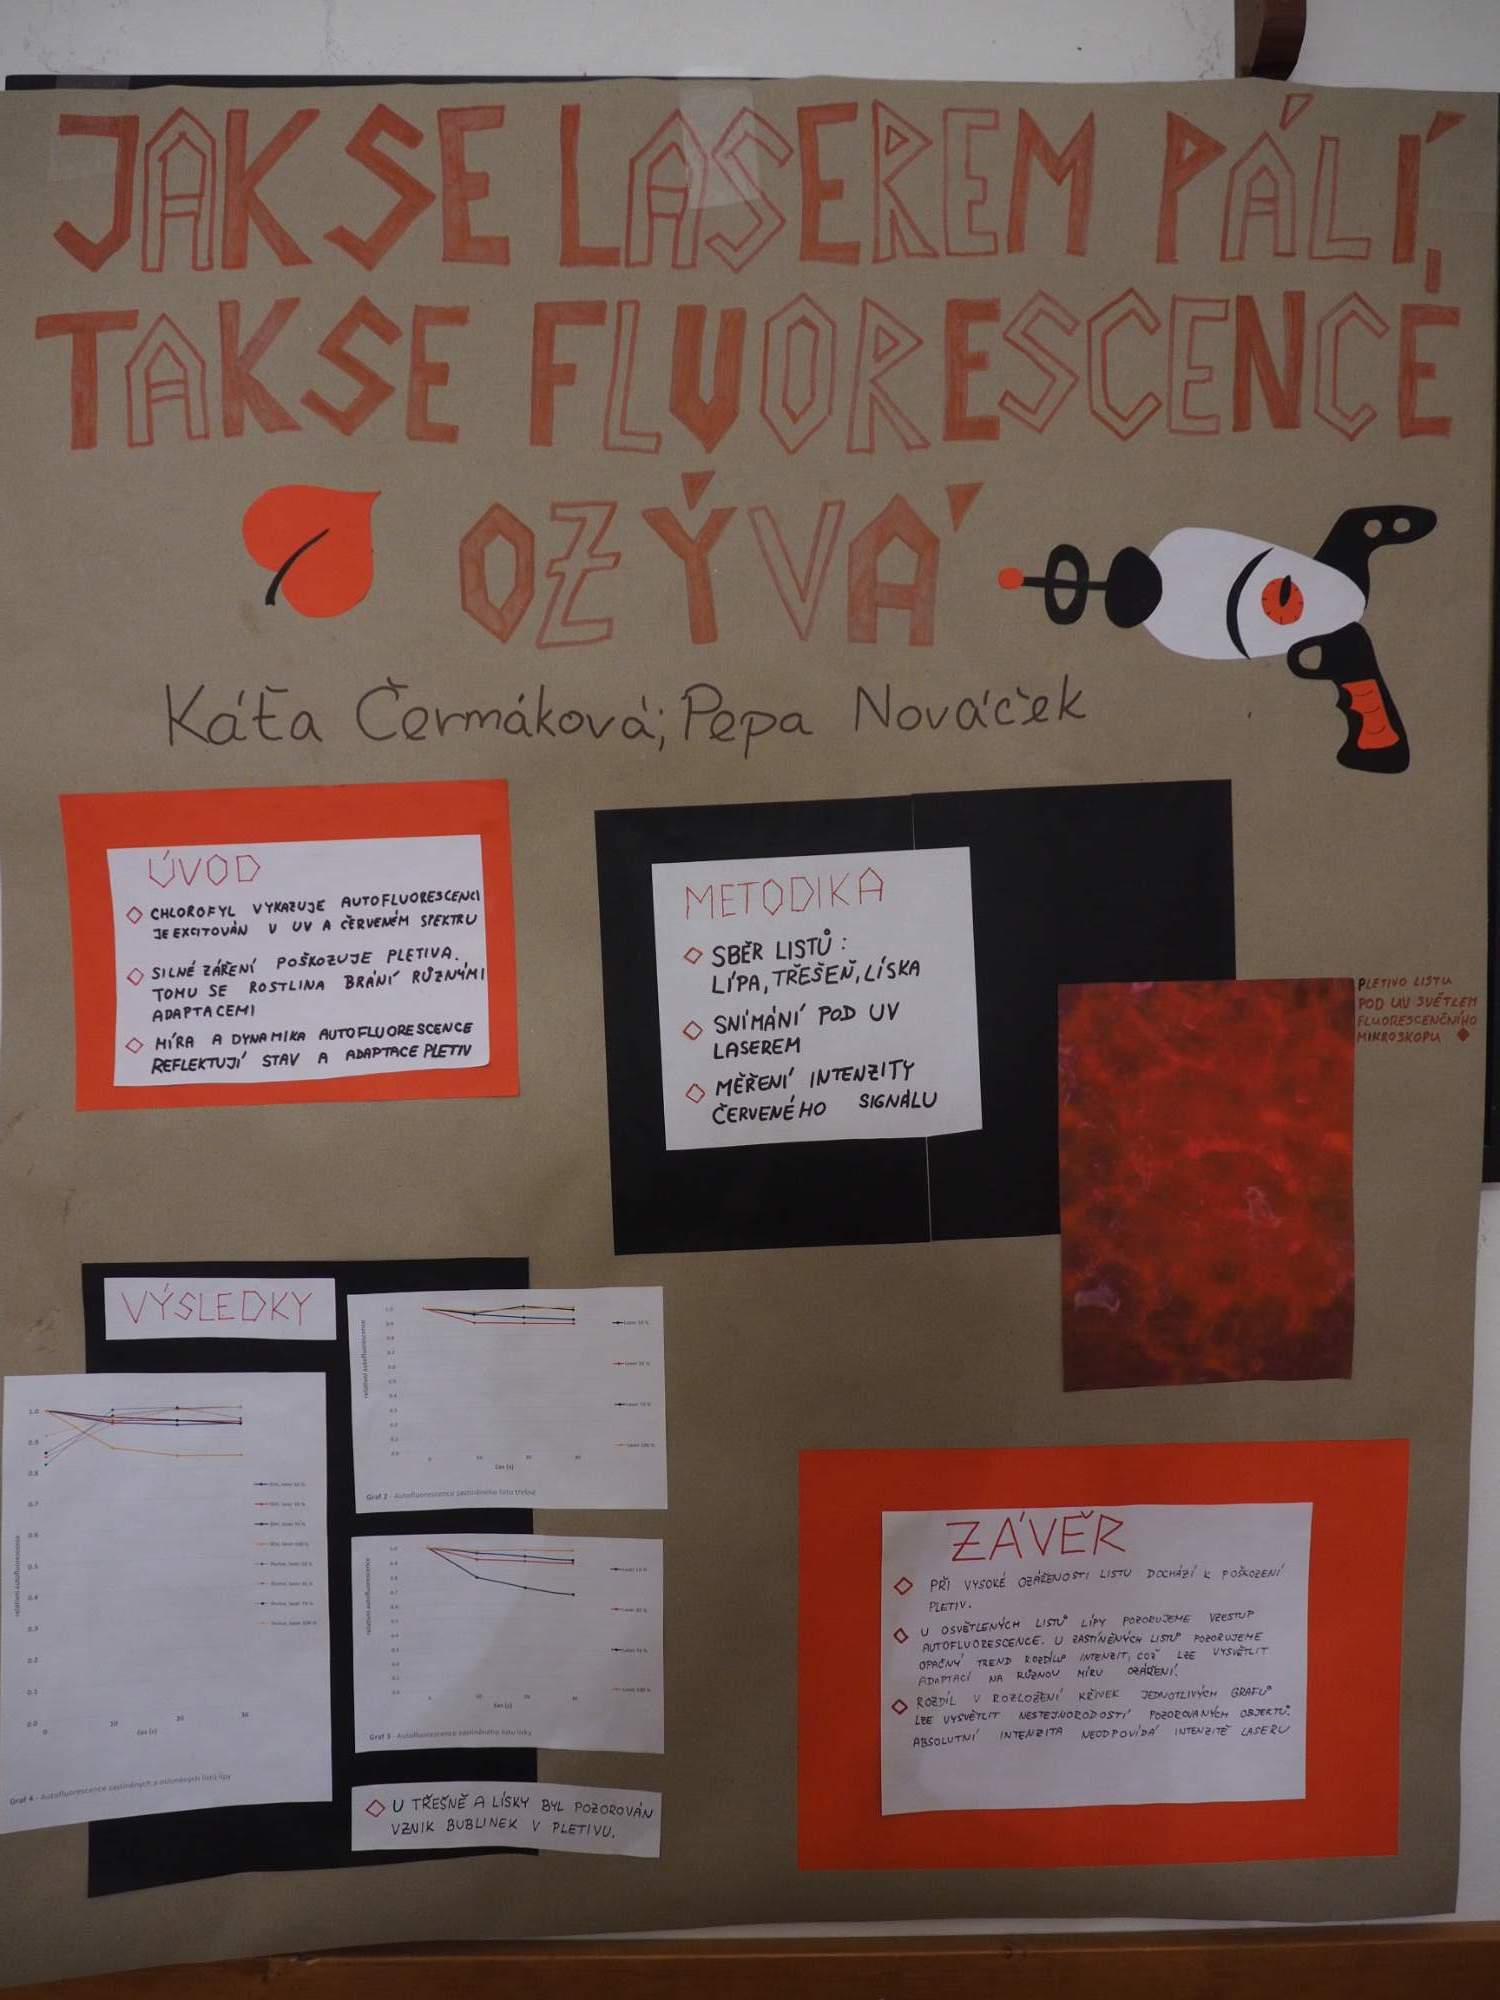 JAK SE LASEREM PÁLÍ,
TAK SE FLUORESCENCE
OZÝVÁ
Káťa Čermáková; Pepa Nováček
ÚVOD
CHLOROFYL VYKAZUJE AUTOFLUORESCENCI
JE EXCITOVÁN V UV A ČERVENÉM SPEKTRU
SILNÉ ZÁŘENÍ POŠKOZUJE PLETIVA.
TOMU SE ROSTLINA BRÁNÍ RŮZNÝMI
ADAPTACEMI
MÍRA A DYNAMIKA AUTOFLUORESCENCE
REFLEKTUJÍ STAV A ADAPTACE PLETIV
METODIKA
SBĚR LISTŮ:
LÍPA, TŘEŠEŇ, LÍSKA
SNÍMÁNÍ POD UV
LASEREM
MĚŘENÍ INTENZITY
ČERVENÉHO SIGNÁLU
PLETIVO LISTU
POD UV SVĚTLEM
FLUORESCENČNÍHO
MIKROSKOPU
VÝSLEDKY
relativní autofluorescence
čas (s)
Graf 2 - Autofluorescence zastíněného listu třešně
relativní autofluorescence
čas (s)
Graf 3 - Autofluorescence zastíněného listu lísky
relativní autofluorescence
1.0
0.9
0.8
0.7
0.6
0.5
0.4
0.3
0.2
0.1
0.0
čas (s)
Graf 4 - Autofluorescence zastíněných a osluněných listů lípy
U TŘEŠNĚ A LÍSKY BYL POZOROVÁN
VZNIK BUBLINEK V PLETIVU.
ZÁVĚR
PŘI VYSOKÉ OZÁŘENOSTI LISTU DOCHÁZÍ K POŠKOZENÍ
PLETIV.
U OSVĚTLENÝCH LISTŮ LÍPY POZORUJEME VZESTUP
AUTOFLUORESCENCE. U ZASTÍNĚNÝCH LISTŮ POZORUJEME
OPAČNÝ TREND ROZDÍLU INTENZIT, COŽ LZE VYSVĚTLIT
ADAPTACÍ NA RŮZNOU MÍRU OZÁŘENÍ.
ROZDÍL V ROZLOŽENÍ KŘIVEK JEDNOTLIVÝCH GRAFŮ
LZE VYSVĚTLIT NESTEJNORODOSTÍ POZOROVANÝCH OBJEKTŮ.
ABSOLUTNÍ INTENZITA NEODPOVÍDÁ INTENZITĚ LASERU